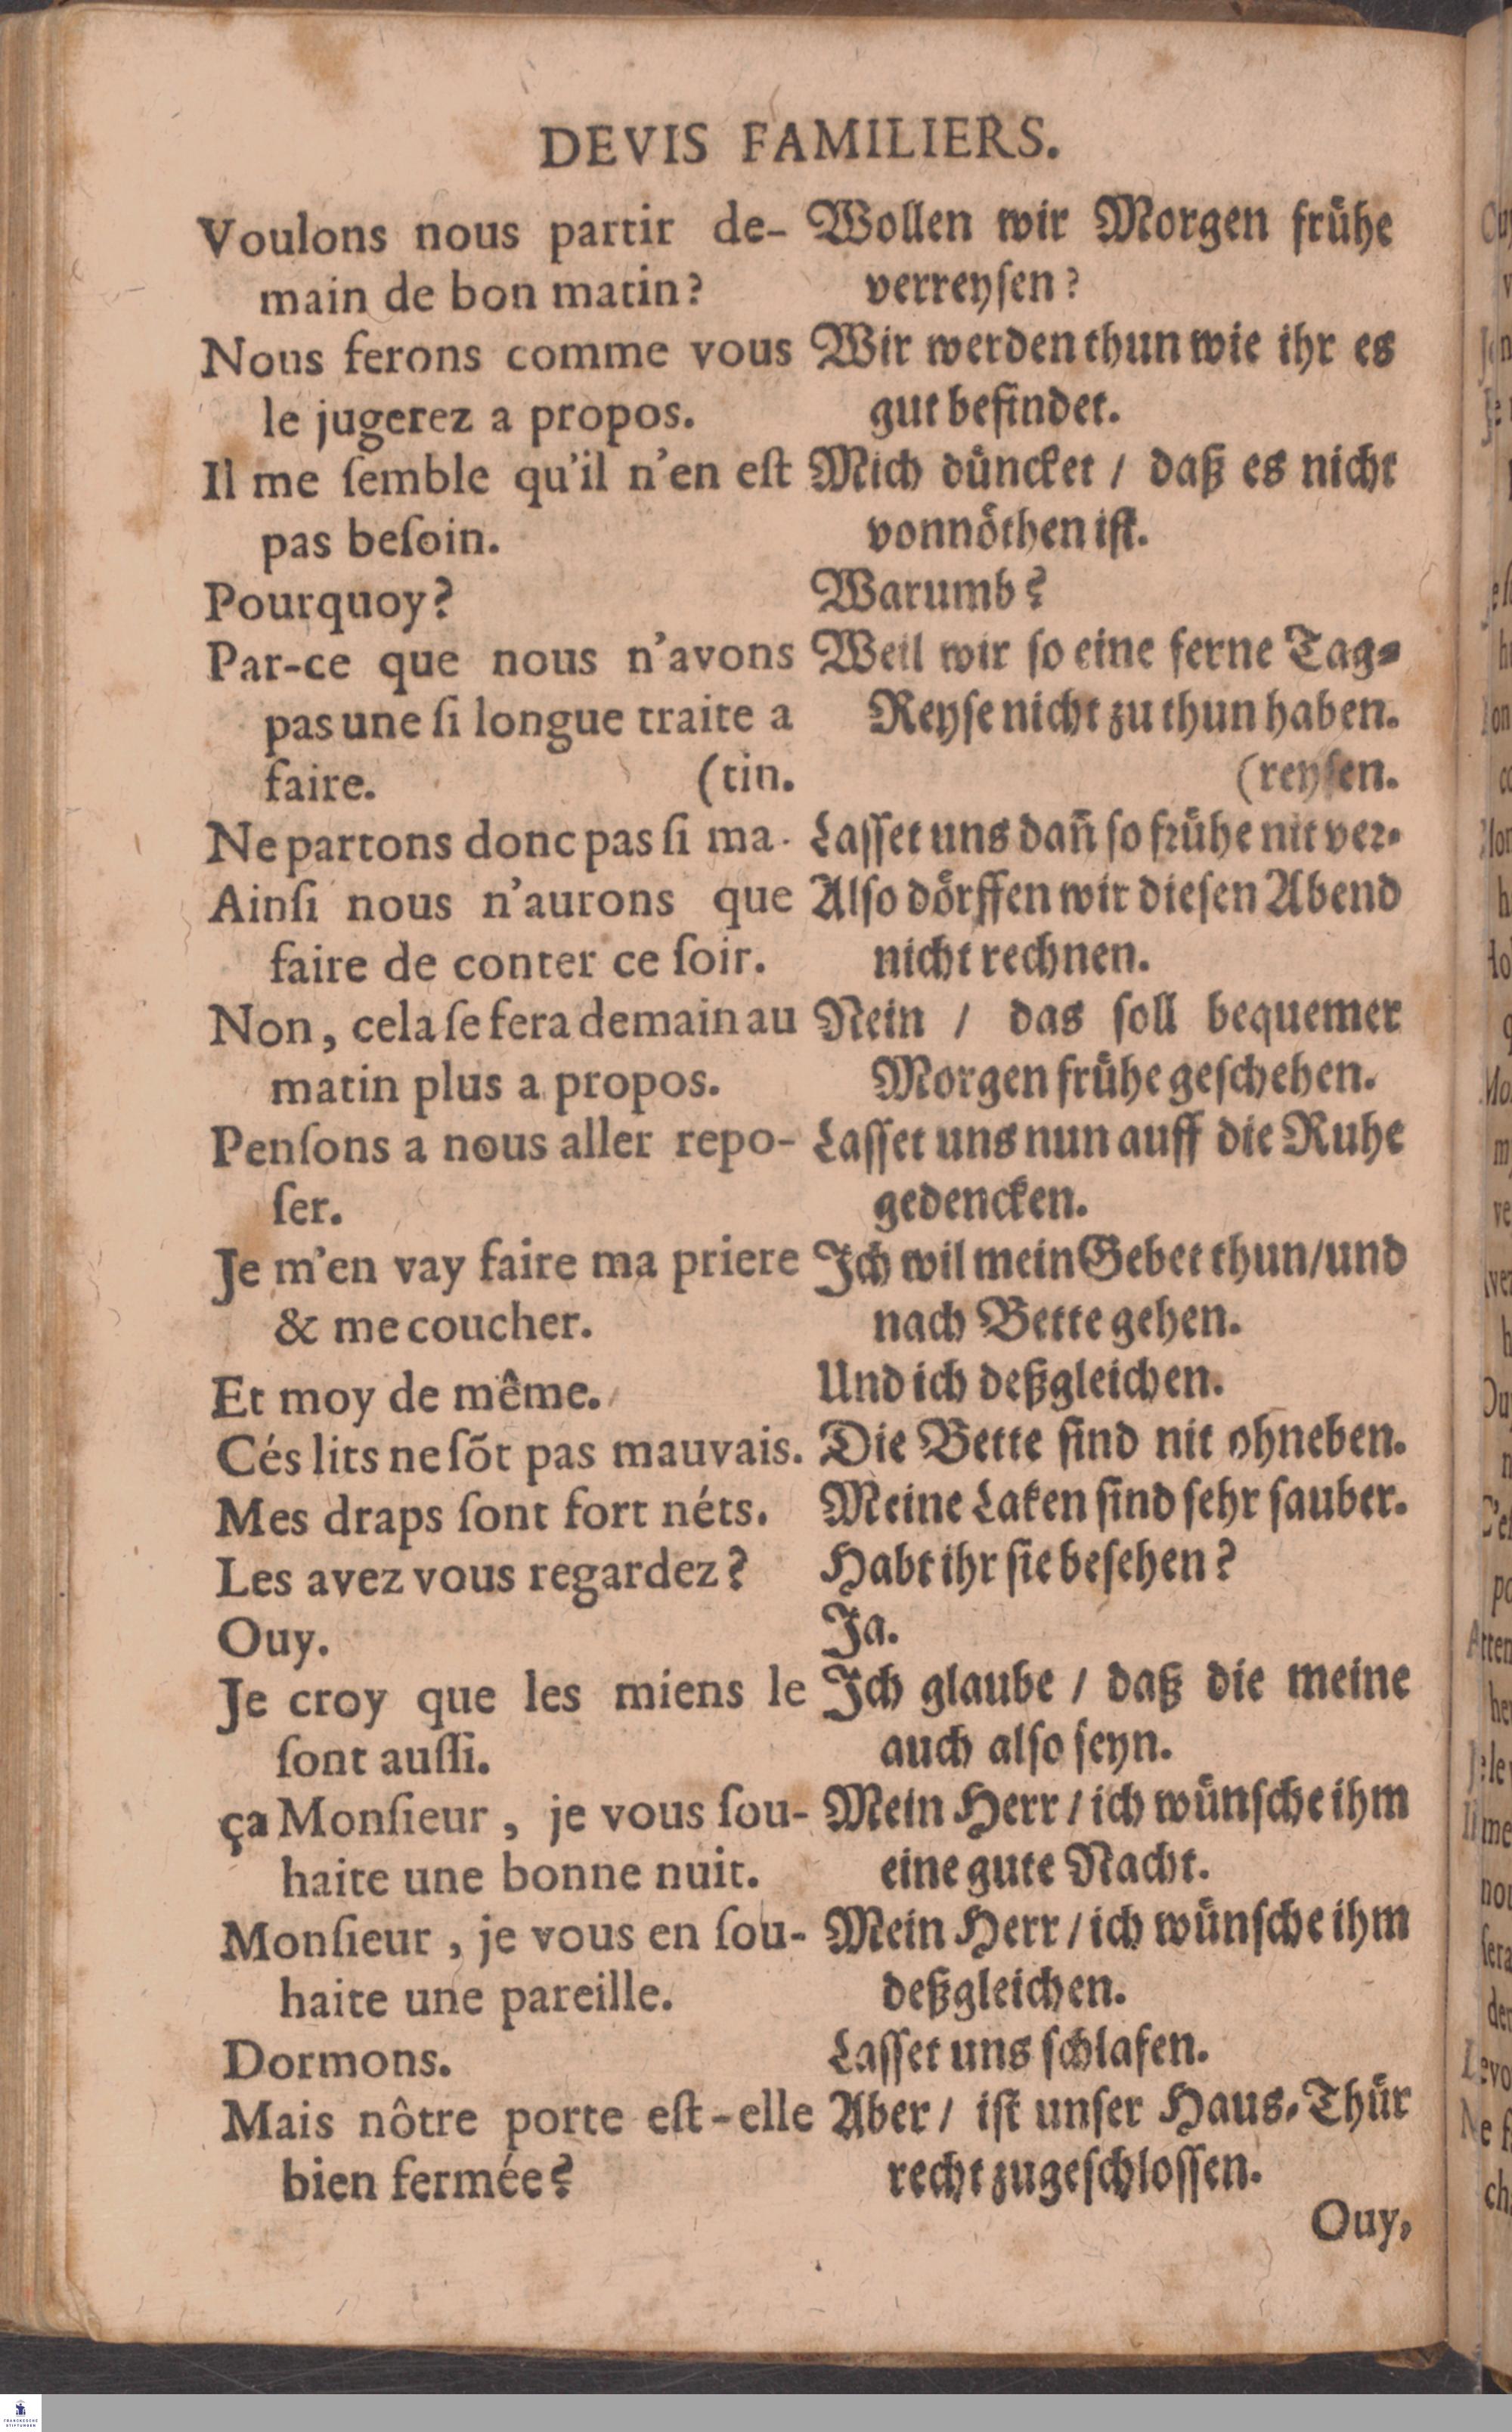 DEVIS FAMILIERS.
Voulons nous partir de-
main de bon matin?
Nous ferons comme vous
le jugerez a propos.
Il me ſemble qu'il n'en eſt
pas beſoin.
Pourquoy?
Par-ce que nous n'avons
pas une ſi longue traite a
faire. (tin.
Ne partons donc pas ſi ma-
Ainſi nous n'aurons que
faire de conter ce ſoir.
Non, cela ſe fera demain au
matin plus a propos.
Penſons a nous aller repo-
ſer.
Je m'en vay faire ma priere
& me coucher.
Et moy de même.
Cés lits ne ſõt pas mauvais.
Mes draps ſont fort néts.
Les avez vous regardez?
Ouy.
Je croy que les miens le
ſont auſſi.
ça Monſieur, je vous ſou-
haite une bonne nuit.
Monſieur, je vous en ſou-
haite une pareille.
Dormons.
Mais nôtre porte eſt-elle
bien fermée?
Wollen wir Morgen frühe
verreyſen?
Wir werden thun wie ihr es
gut befindet.
Mich düncket / daß es nicht
vonnöthen iſt.
Warumb?
Weil wir ſo eine ferne Tag-
Reyſe nicht zu thun haben.
(reyſen.
Laſſet uns dañ ſo frühe nit ver-
Alſo dörffen wir dieſen Abend
nicht rechnen.
Nein / das ſoll bequemer
Morgen frühe geſchehen.
Laſſet uns nun auff die Ruhe
gedencken.
Ich wil mein Gebet thun/und
nach Bette gehen.
Und ich deßgleichen.
Die Bette ſind nit ohneben.
Meine Laken ſind ſehr ſauber.
Habt ihr ſie beſehen?
Ja.
Ich glaube / daß die meine
auch alſo ſeyn.
Mein Herr / ich wünſche ihm
eine gute Nacht.
Mein Herr / ich wünſche ihm
deßgleichen.
Laſſet uns ſchlafen.
Aber / iſt unſer Haus-Thür
recht zugeſchloſſen.
Ouy,
FRANCKESCHE
STIFTUNGEN